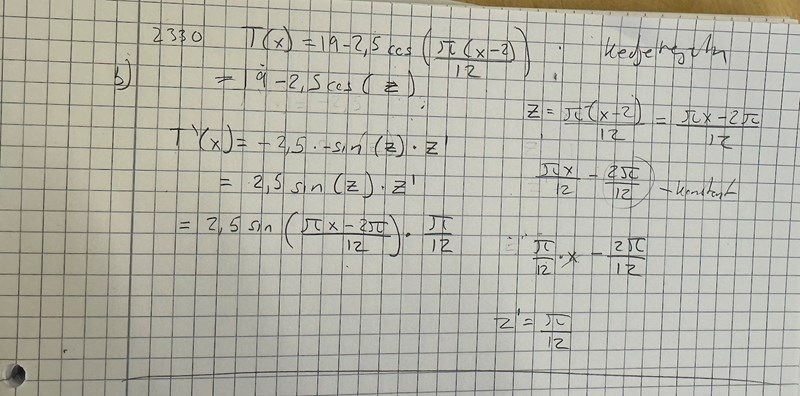 2330 T(x) = 19-2,5 cos (π(x-2)/12) Kedjeregeln
b) = 19-2,5 cos (z)
z = π(x-2)/12 = πx-2π/12
T'(x) = -2,5 · -sin(z) · z'
πx/12 - 2π/12 - konstant
= 2,5 sin(z) · z'
= 2,5 sin (πx-2π/12) · π/12
π/12 · x - 2π/12
z' = π/12